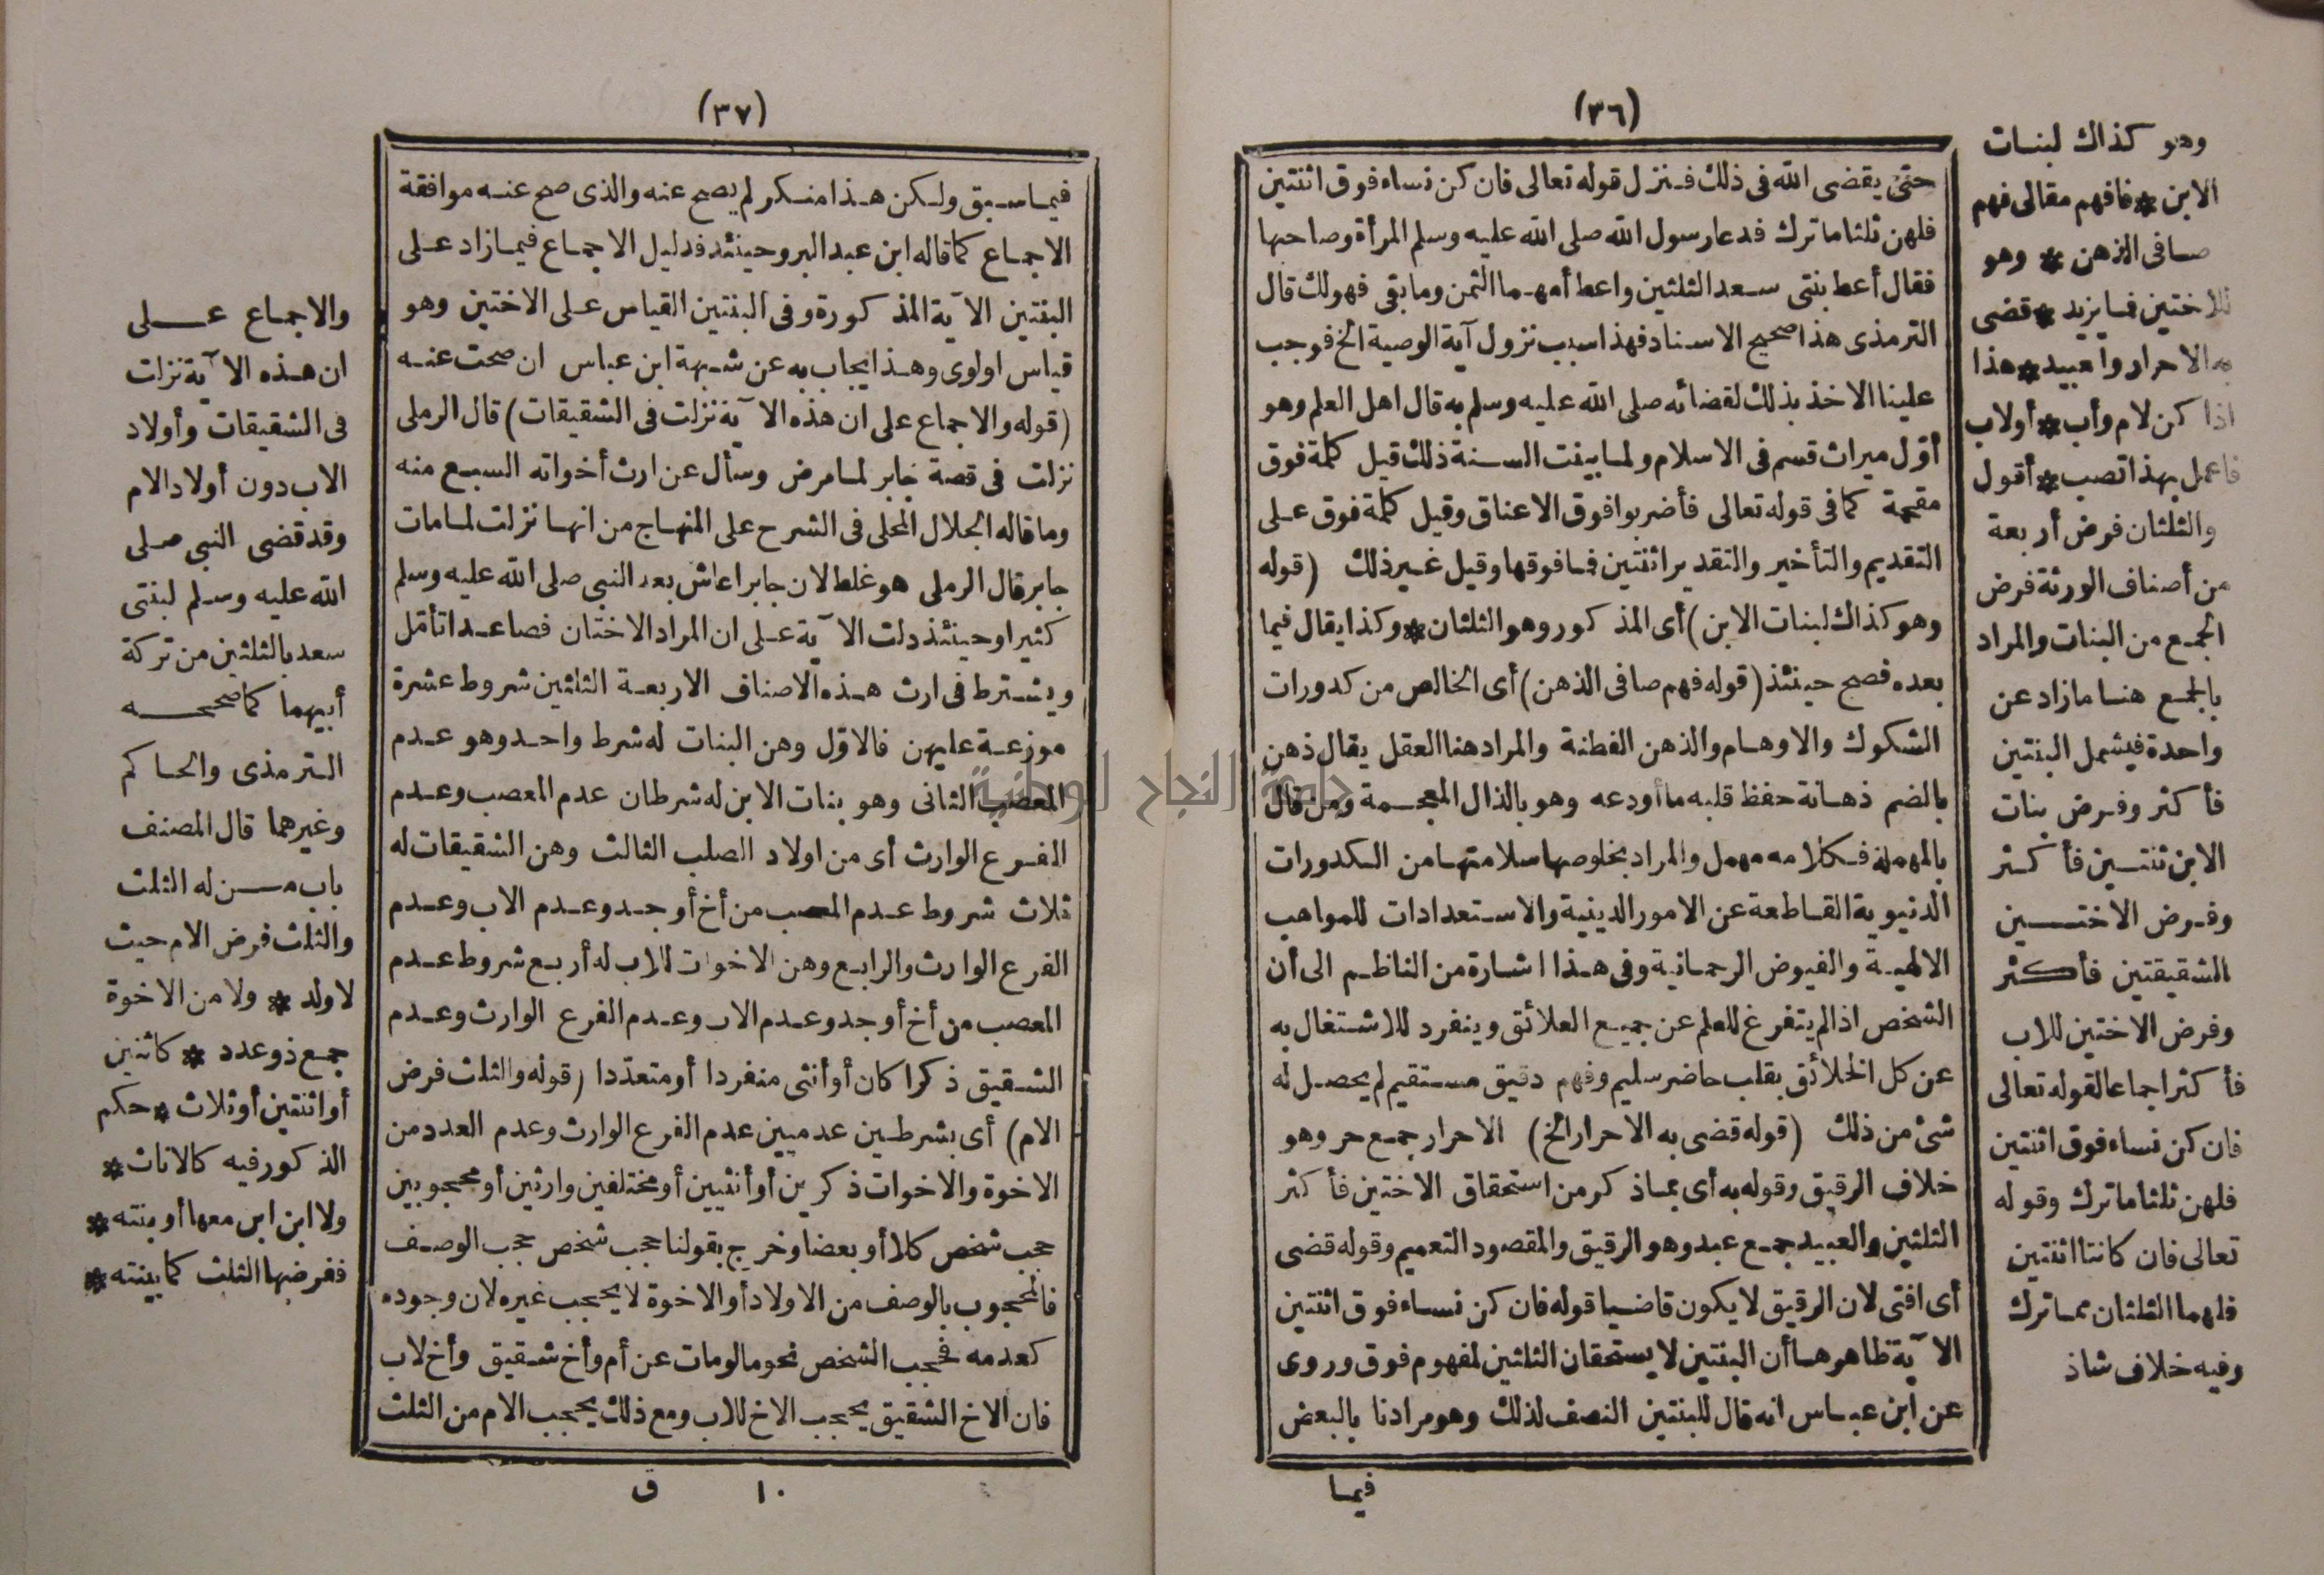 (٣٦)
حتى يقضى الله فى ذلك فنزل قوله تعالى فان كن نساء فوق اثنتين
فلهن ثلثا ما ترك فدعا رسول الله صلى الله عليه وسلم المرأة وصاحبها
فقال أعط بنتى سعد الثلثين واعط أمهما الثمن وما بقى فهو لك قال
الترمذى هذا صحيح الاسناد فهذا سبب نزول آية الوصية الخ فوجب
علينا الاخذ بذلك لقضائه صلى الله عليه وسلم به قال اهل العلم وهو
أول ميراث قسم فى الاسلام ولما بينت السنة ذلك قيل كلمة فوق
مقحمة كما فى قوله تعالى فأضربوا فوق الاعناق وقيل كلمة فوق على
التقديم والتأخير والتقدير اثنتين فما فوقها وقيل غير ذلك (قوله
وهو كذاك لبنات الابن) أى المذكور وهو الثلثان * وكذا يقال فيما
بعده فصح حينئذ (قوله فهم صافى الذهن) أى الخالص من كدورات
الشكوك والاوهام والذهن الفطنة والمراد هنا العقل يقال ذهن
بالضم ذهانة حفظ قلبه ما أودعه وهو بالذال المعجمة ومن قال
بالمهملة فكلامه مهمل والمراد بخلوصها سلامتها من الكدورات
الدنيوية القاطعة عن الامور الدينية والاستعدادات للمواهب
الالهية والفيوض الرحمانية وفى هذا اشارة من الناظم الى أن
الشخص اذا لم يتفرغ للعلم عن جميع العلائق وينفرد للاشتغال به
عن كل الخلائق بقلب حاضر سليم وفهم دقيق مستقيم لم يحصل له
شئ من ذلك (قوله قضى به الاحرار الخ) الاحرار جمع حر وهو
خلاف الرقيق وقوله به أى بما ذكر من استحقاق الاختين فأكثر
الثلثين والعبيد جمع عبد وهو الرقيق والمقصود التعميم وقوله قضى
أى افتى لان الرقيق لا يكون قاضيا قوله فان كن نساء فوق اثنتين
الآية ظاهرها أن البنتين لا يستحقان الثلثين لمفهوم فوق وروى
عن ابن عباس انه قال للبنتين النصف لذلك وهو مرادنا بالبعض
فيما
وهو كذاك لبنات
الابن * فافهم مقالى فهم
صافى الذهن * وهو
للاختين فما يزيد * قضى
به الاحرار والعبيد * هذا
اذا كن لام وأب * أولاب
فاعمل بهذا تصب * أقول
والثلثان فرض أربعة
من أصناف الورثة فرض
الجمع من البنات والمراد
بالجمع هنا ما زاد عن
واحدة فيشمل البنتين
فأكثر وفرض بنات
الابن ثنتين فأكثر
وفرض الاختين
الشقيقتين فأكثر
وفرض الاختين للاب
فأكثر اجماعا لقوله تعالى
فان كن نساء فوق اثنتين
فلهن ثلثا ما ترك وقوله
تعالى فان كانتا اثنتين
فلهما الثلثان مما ترك
وفيه خلاف شاذ
(٣٧)
فيما سبق ولكن هذا منكر لم يصح عنه والذى صح عنه موافقة
الاجماع كما قاله ابن عبد البر وحينئذ فدليل الاجماع فيما زاد على
البنتين الآية المذكورة وفى البنتين القياس على الاختين وهو
قياس اولوى وهذا يجاب به عن شبهة ابن عباس ان صحت عنه
(قوله والاجماع على ان هذه الآية نزلت فى الشقيقات) قال الرملى
نزلت فى قصة جابر لما مرض وسأل عن ارث أخواته السبع منه
وما قاله الجلال المحلى فى الشرح على المنهاج من انها نزلت لما مات
جابر قال الرملى هو غلط لان جابرا عاش بعد النبى صلى الله عليه وسلم
كثيرا وحينئذ دلت الآية على ان المراد الاختان فصاعدا تأمل
ويشترط فى ارث هذه الاصناف الاربعة الثلثين شروط عشرة
موزعة عليهن فالاول وهن البنات له شرط واحد وهو عدم
المعصب الثانى وهو بنات الابن له شرطان عدم المعصب وعدم
الفرع الوارث أى من اولاد الصلب الثالث وهن الشقيقات له
ثلاث شروط عدم المعصب من أخ أو جد وعدم الاب وعدم
الفرع الوارث والرابع وهن الاخوات للاب له أربع شروط عدم
المعصب من أخ أو جد وعدم الاب وعدم الفرع الوارث وعدم
الشقيق ذكرا كان أو أنثى منفردا أو متعددا (قوله والثلث فرض
الام) أى بشرطين عدميين عدم الفرع الوارث وعدم العدد من
الاخوة والاخوات ذكرين أو أنثيين أو مختلفين وارثين أو محجوبين
حجب شخص كلا أو بعضا وخرج بقولنا حجب شخص حجب الوصف
فالمحجوب بالوصف من الاولاد أو الاخوة لا يحجب غيره لان وجوده
كعدمه فحجب الشخص نحو ما لو مات عن أم وأخ شقيق وأخ لاب
فان الاخ الشقيق يحجب الاخ للاب ومع ذلك يحجب الام من الثلث
١٠ ق
والاجماع على
ان هذه الآية نزلت
فى الشقيقات وأولاد
الاب دون أولاد الام
وقد قضى النبى صلى
الله عليه وسلم لبنتى
سعد بالثلثين من تركة
أبيهما كما صححه
الترمذى والحاكم
وغيرهما قال المصنف
باب من له الثلث
والثلث فرض الام حيث
لا ولد * ولا من الاخوة
جمع ذو عدد * كاثنين
أو اثنتين أو ثلاث * حكم
الذكور فيه كالاناث *
ولا ابن ابن معها أو بنته *
ففرضها الثلث كما بينته *
جامعة النجاح الوطنية